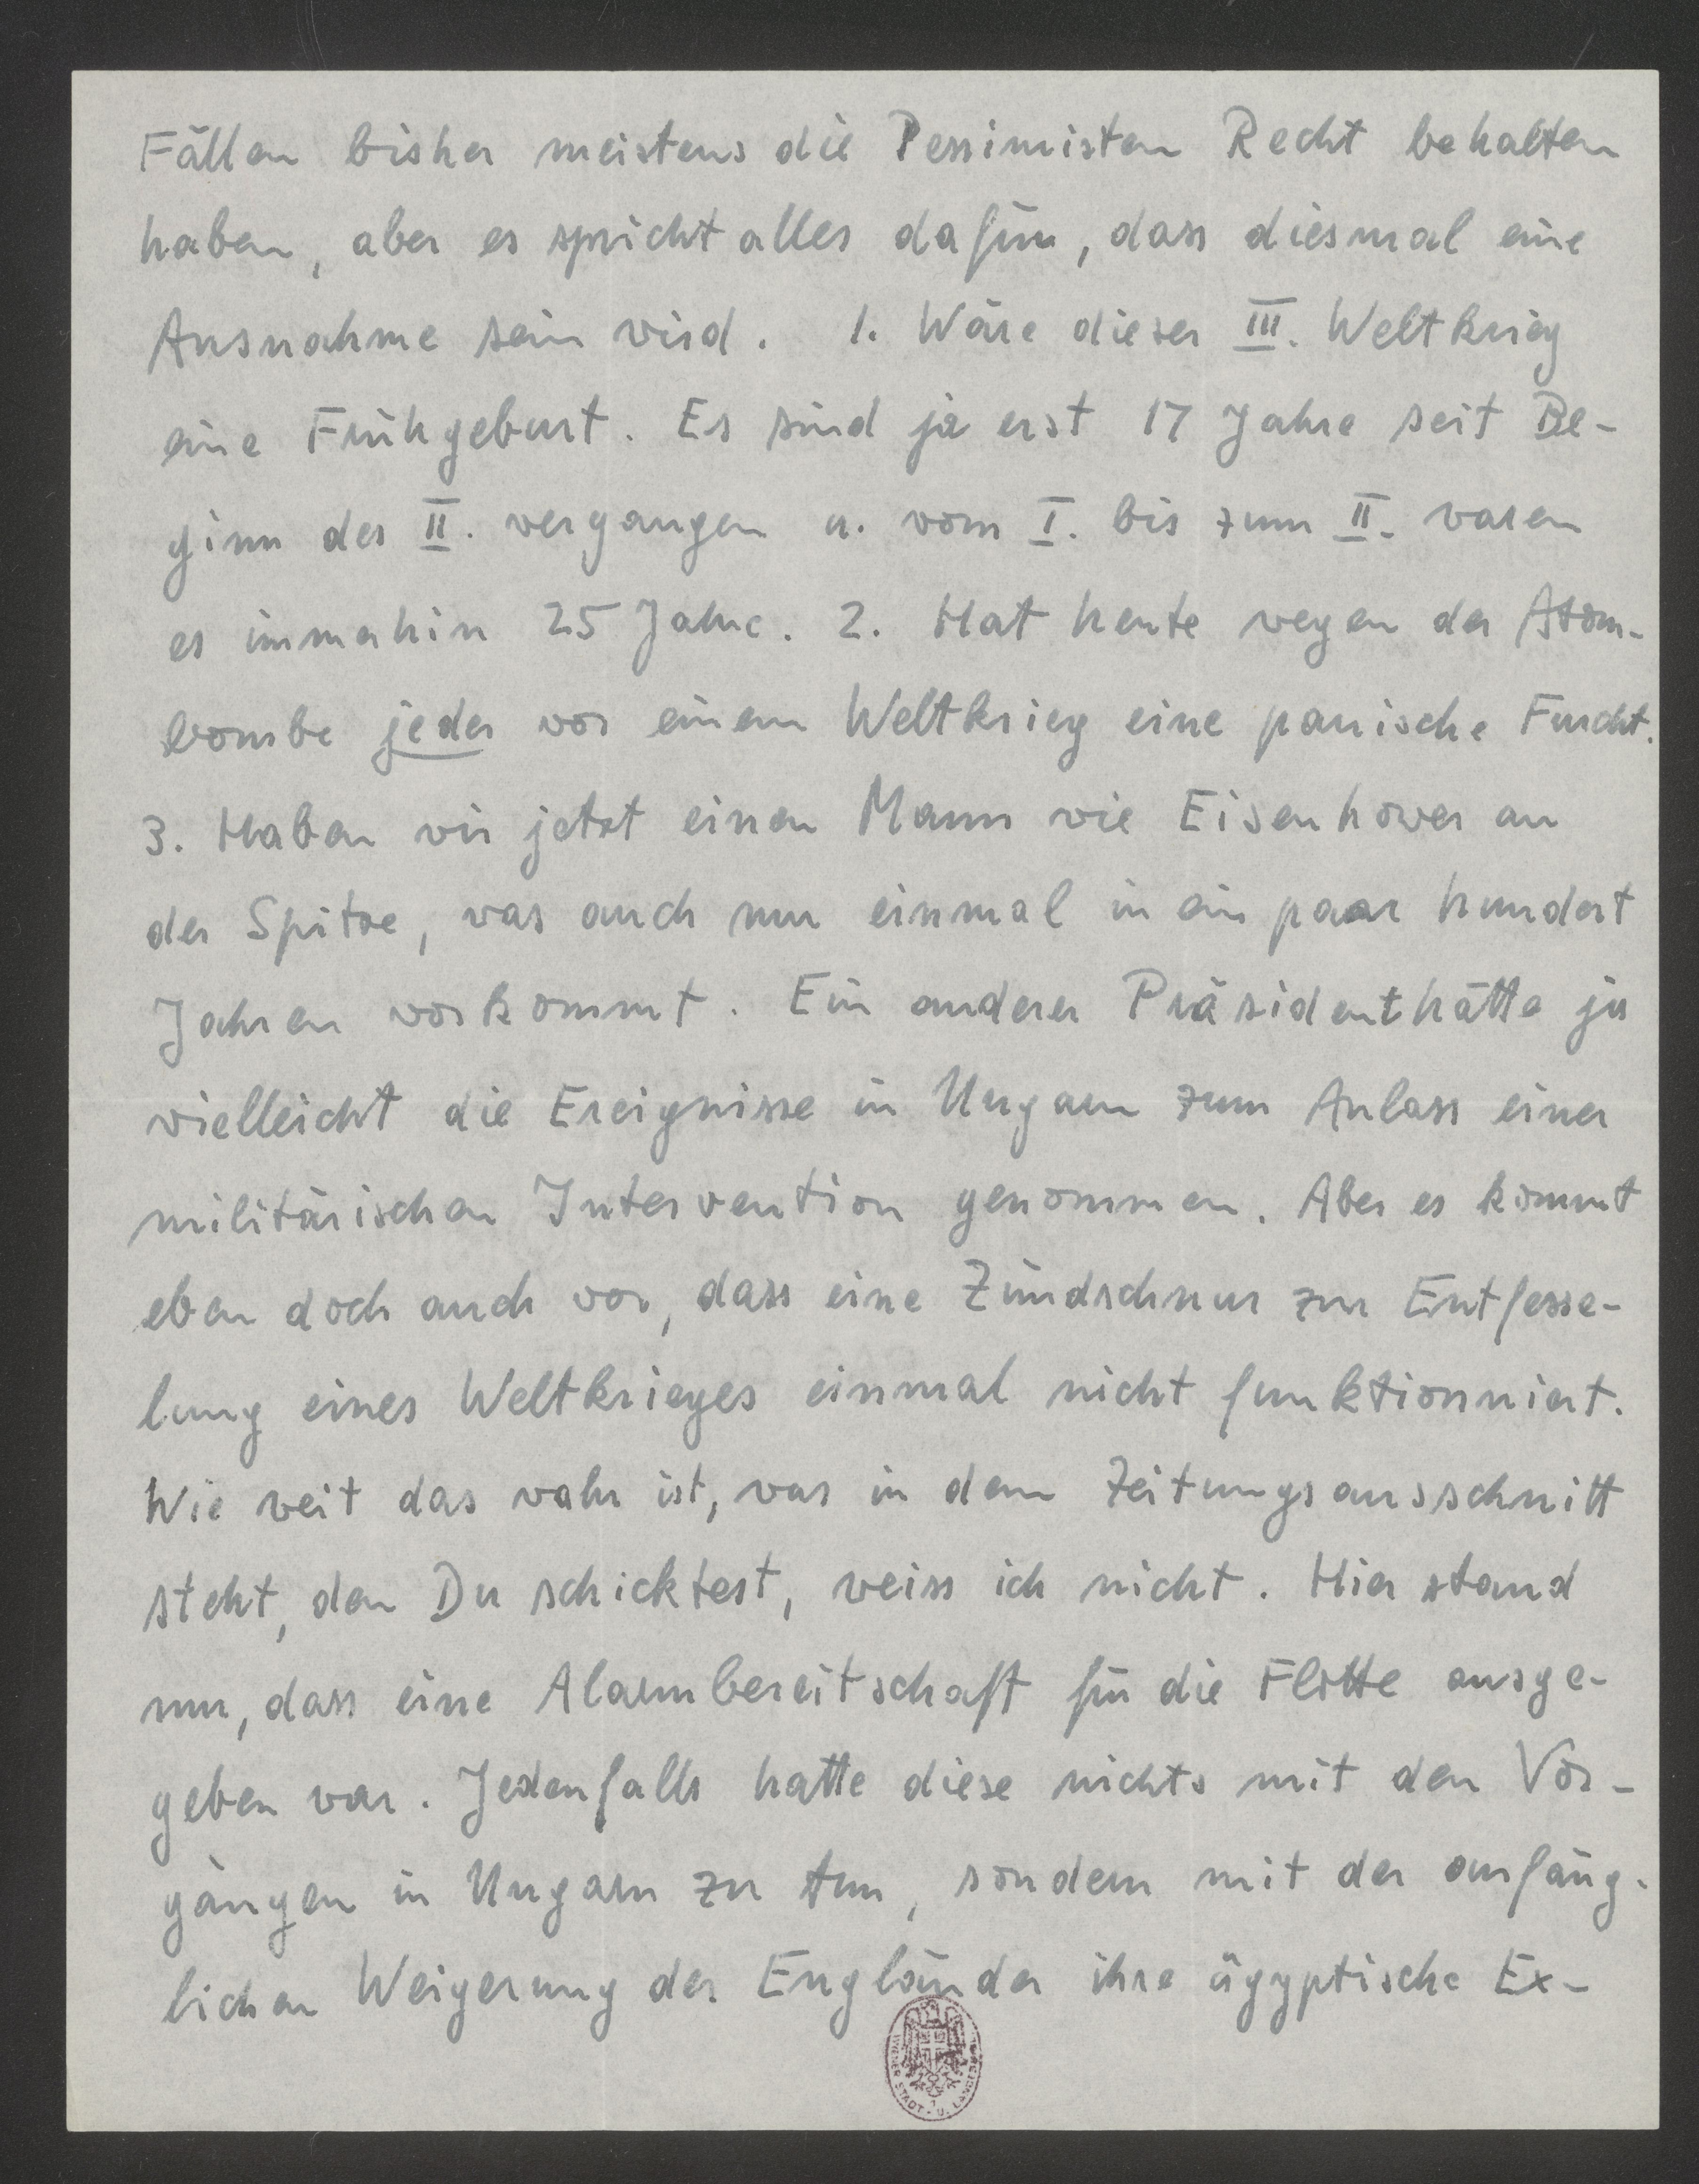 Fällen bisher meistens die Pessimisten Recht behalten
haben, aber es spricht alles dafür, dass diesmal eine
Ausnahme sein wird. 1. Wäre dieser III. Weltkrieg
eine Frühgeburt. Es sind ja erst 17 Jahre seit Be-
ginn des II. vergangen u. vom I. bis zum II. waren
es immerhin 25 Jahre. 2. Hat heute wegen der Atom-
bombe jeder vor einem Weltkrieg eine panische Furcht.
3. Haben wir jetzt einen Mann wie Eisenhower an
der Spitze, was auch nur einmal in ein paar hundert
Jahren vorkommt. Ein anderer Präsident hätte ja
vielleicht die Ereignisse in Ungarn zum Anlass einer
militärischen Intervention genommen. Aber es kommt
eben doch auch vor, dass eine Zündschnur zur Entfesse-
lung eines Weltkrieges einmal nicht funktionniert.
Wie weit das wahr ist, was in dem Zeitungsausschnitt
steht, den Du schicktest, weiss ich nicht. Hier stand
nur, dass eine Alarmbereitschaft für die Flotte ausge-
geben war. Jedenfalls hatte diese nichts mit den Vor-
gängen in Ungarn zu tun, sondern mit der anfäng-
lichen Weigerung der Engländer ihre ägyptische Ex-
STADT- U. LANDES